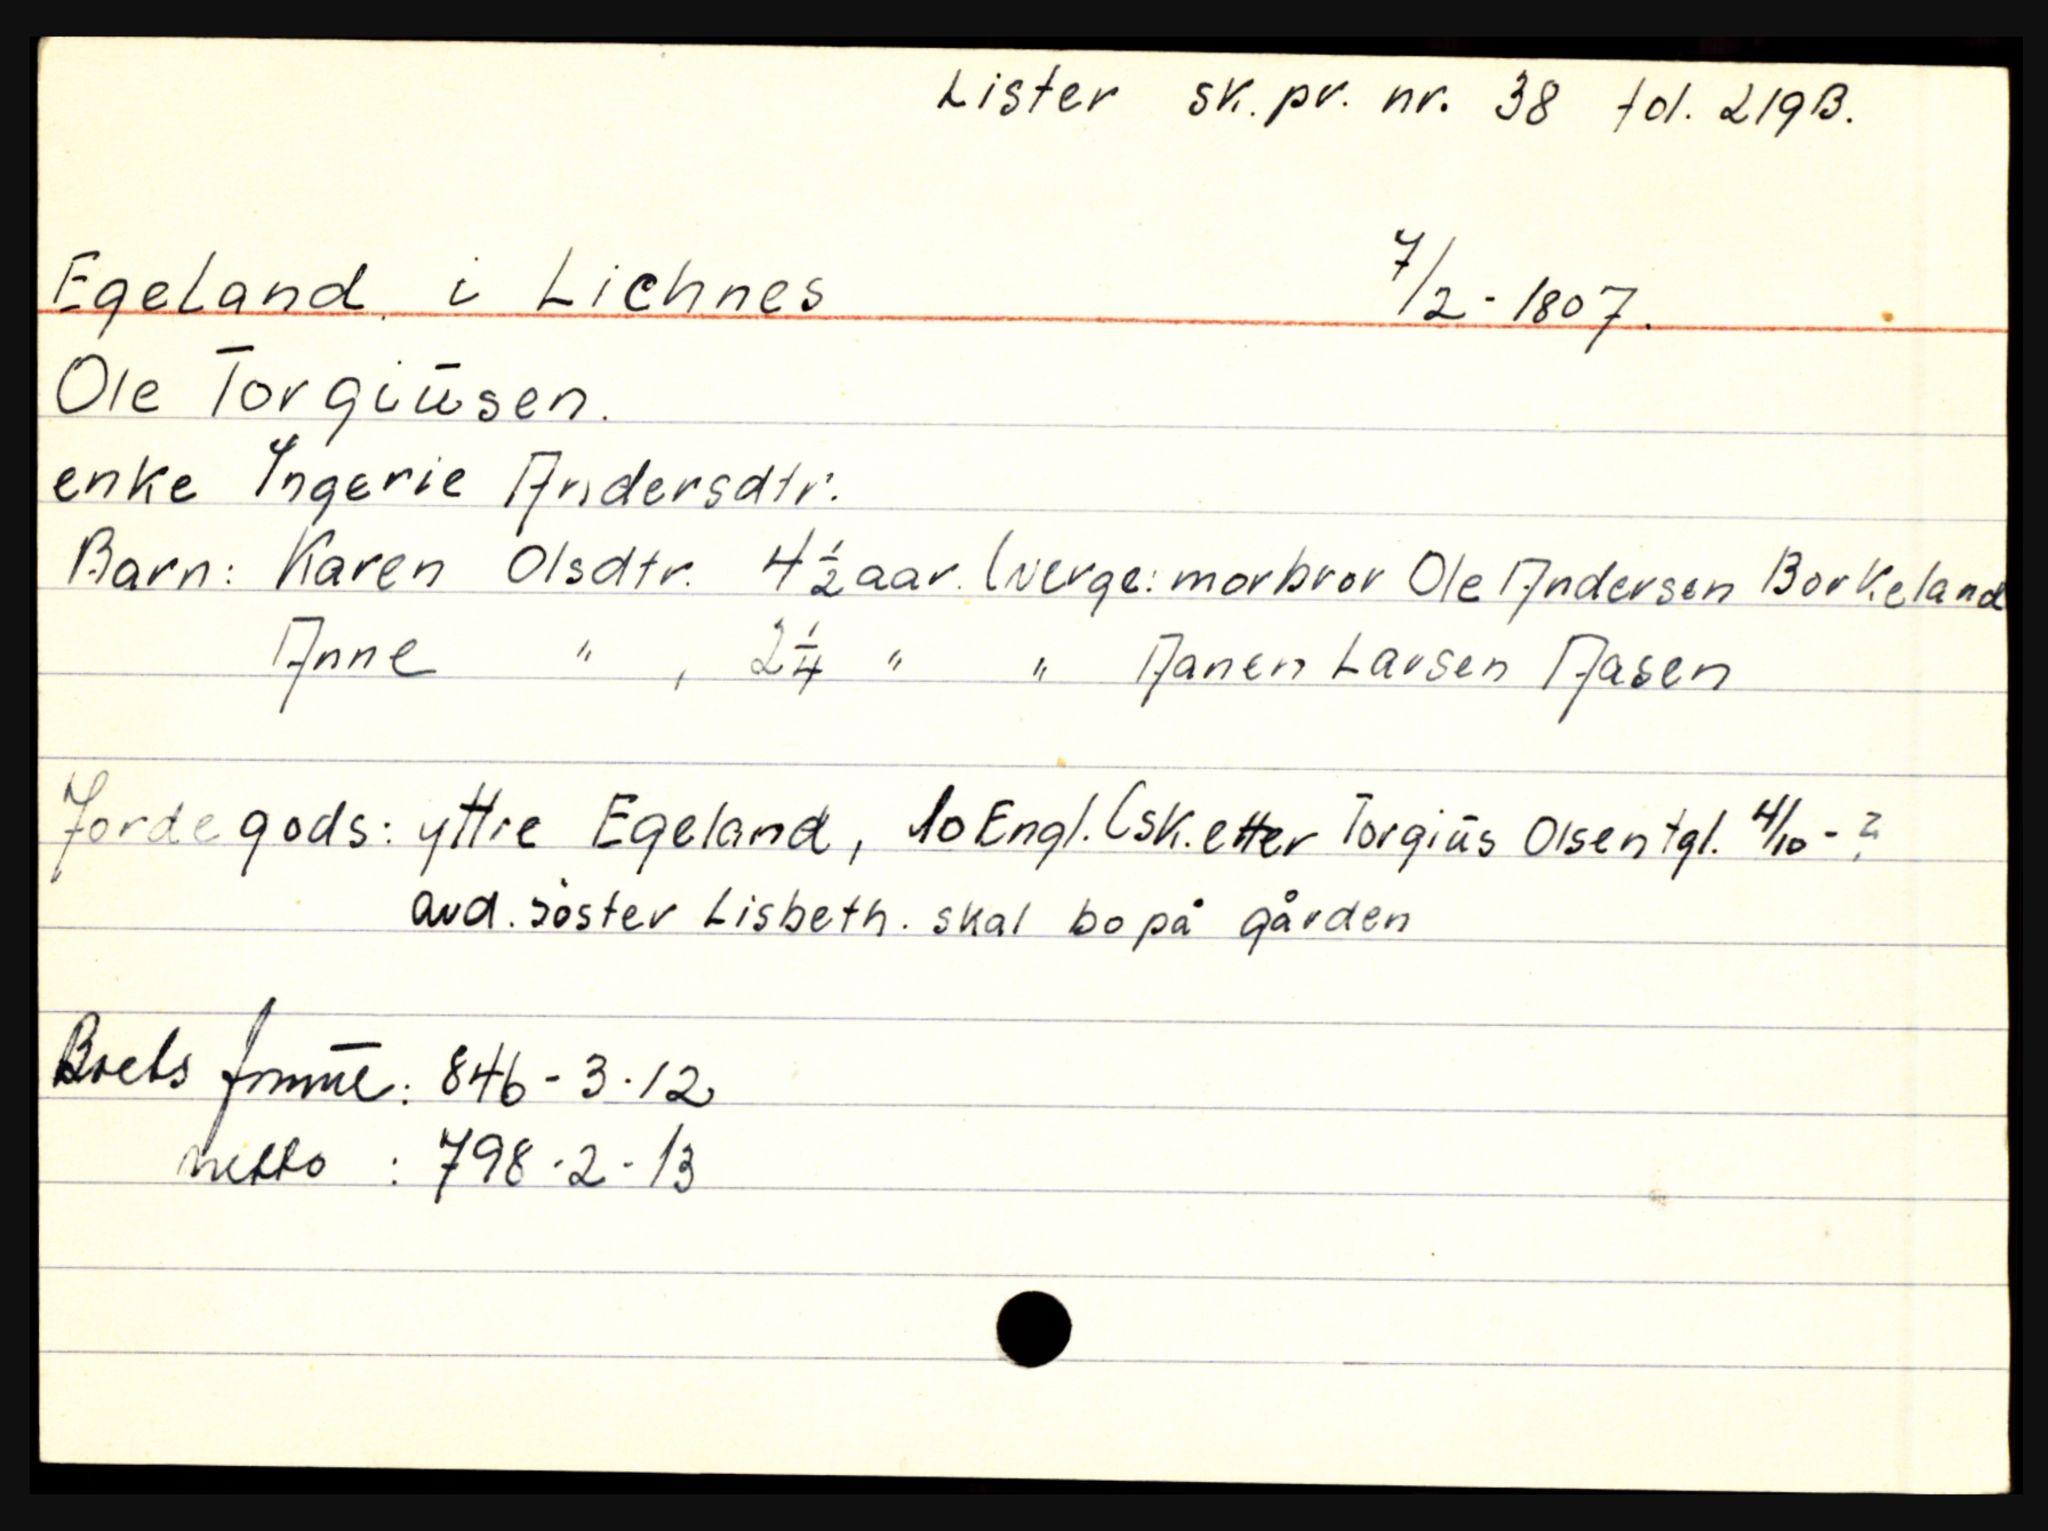 Lister sk. pr. nr. 38 fol. 219B.
Egeland i Lichnes 7/2 - 1807.
Ole Torgiüsen.
enke Ingerie Andersdtr.
Barn: Karen Olsdtr. 4 1/2 aar. (verge: morbror Ole Andersen Borkeland
Anne " , 2 1/4 " " Aanen Larsen Aasen
Jordegods: yttre Egeland, 10 Engl. (sk. etter Torgiüs Olsen tgl. 4/10 - ?
avd. söster Lisbeth. skal bo på gården
Boets : 846 - 3 - 12
netto : 798 - 2 - 13